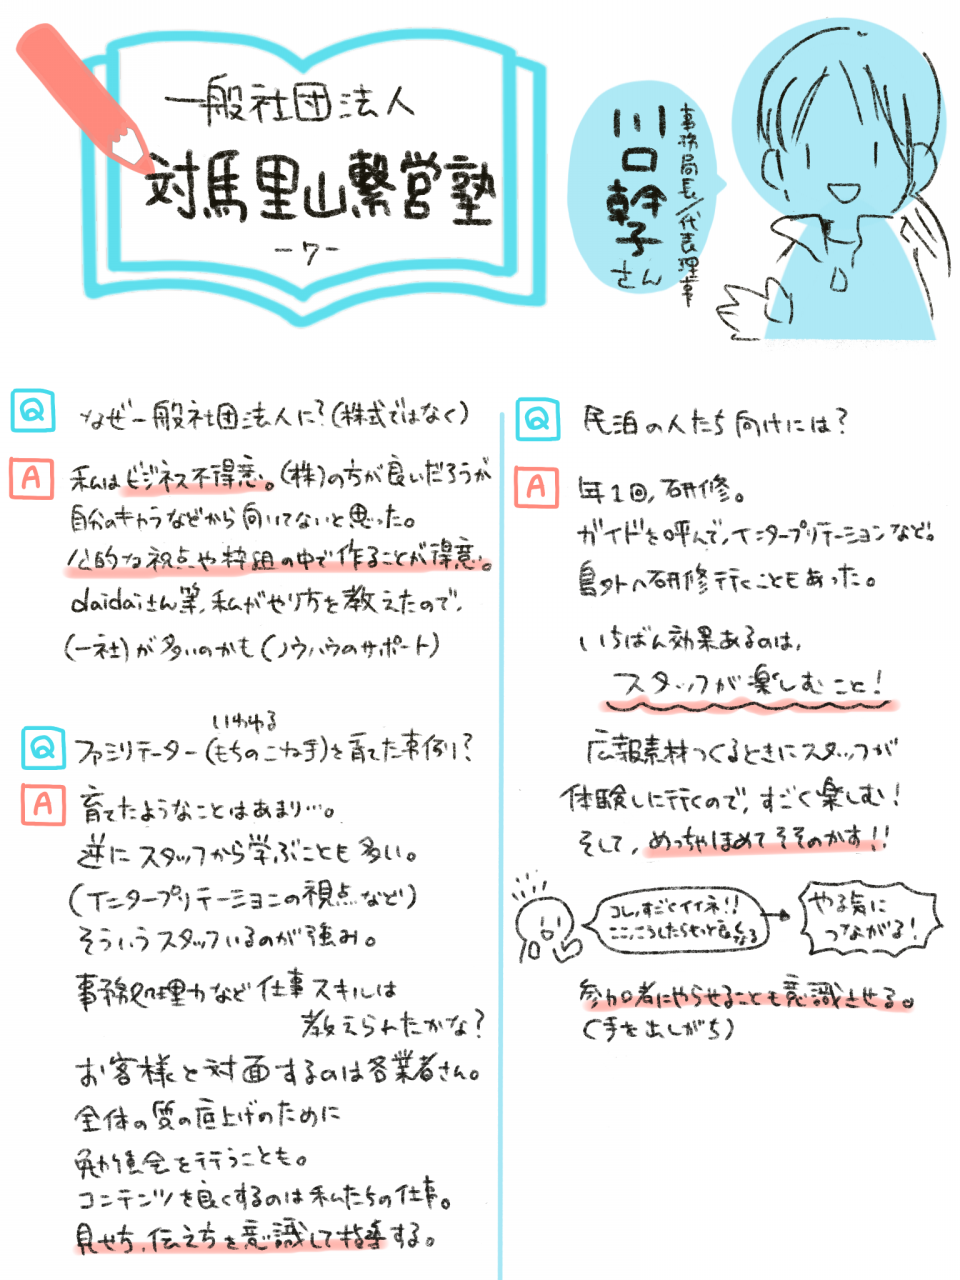 一般社団法人
対馬里山繋営塾
-7-
事務局長/代表理事
川口幹子さん
Q なぜ一般社団法人に?(株式ではなく)
A 私はビジネス不得意。(株)の方が良いだろうが
自分のキャラなどから向いてないと思った。
公的な視点や枠組の中で作ることが得意。
daidaiさん等、私がやり方を教えたので、
(一社)が多いのかも(ノウハウのサポート)
いわゆる
Q ファミリテーター(もちのこね手)を育てた事例?
A 育てたようなことはあまり…。
逆にスタッフから学ぶことも多い。
(インタープリテーションの視点など)
そういうスタッフいるのが強み。
事務処理力など仕事スキルは
教えられたかな?
お客様と対面するのは各業者さん。
全体の質の底上げのために
勉強会を行うことも。
コンテンツを良くするのは私たちの仕事。
見せ方、伝え方を意識して指導する。
Q 民泊の人たち向けには?
A 年1回、研修。
ガイドを呼んで、インタープリテーションなど。
島外へ研修行くこともあった。
いちばん効果あるのは、
スタッフが楽しむこと!
広報素材つくるときにスタッフが
体験しに行くので、すごく楽しむ!
そして、めっちゃほめてそそのかす!!
コレ、すごくイイネ!!
ここ、こうしたらもっと良くなる
やる気に
つながる!
参加者にやらせることも意識させる。
(手を出しがち)